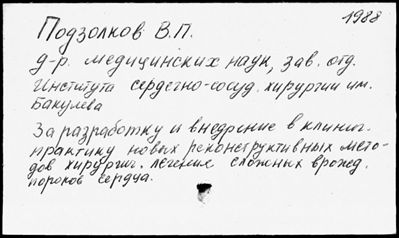 1988
Подзолков В.П.
д-р. медицинских наук, зав. отд.
Института сердечно-сосуд. хирургии им.
Бакулева
За разработку и внедрение в клинич.
практику новых реконструктивных мето-
дов хирургич. лечения сложных врожд.
пороков сердца.